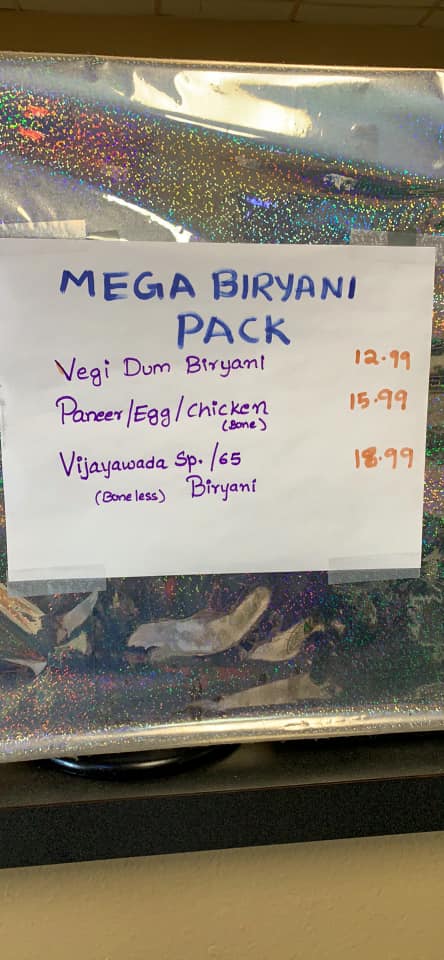 MEGA BIRYANI
PACK
Vegi Dum Biryani 12.99
Paneer/Egg/Chicken 15.99
(Bone)
Vijayawada Sp. /65 18.99
(Boneless) Biryani